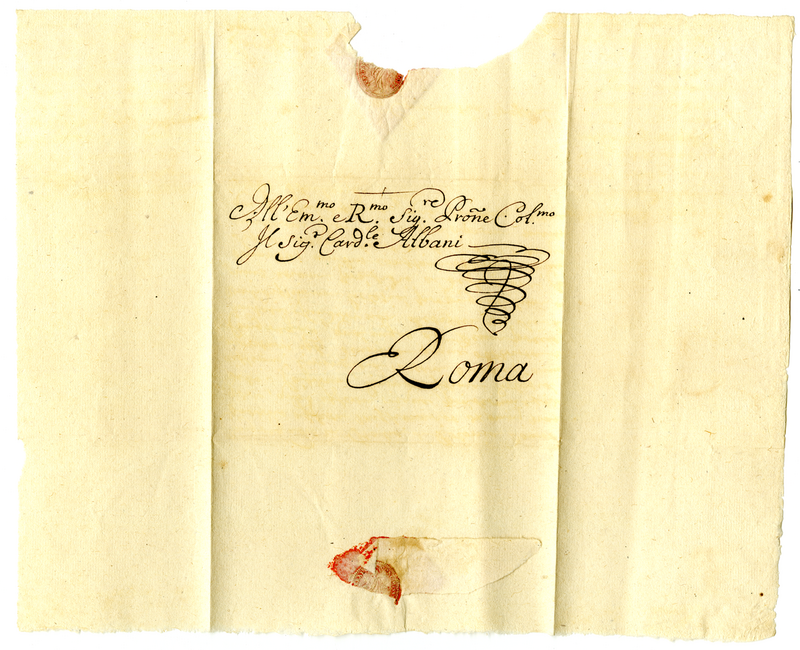 All'Em.mo e R.mo Sig.re Proñe Col.mo
Il Sig.r Card.le Albani
Roma